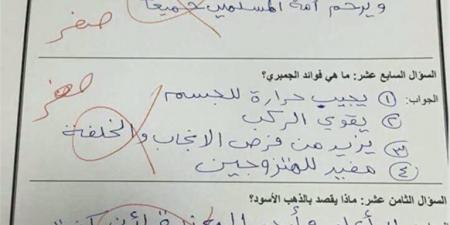 ويرحم أمة المسلمين جميعاً
صفر
السؤال السابع عشر: ما هي فوائد الجمبري؟
الجواب: ① يجيب حرارة للجسم
صفر
② يقوي الركب
③ يزيد من فرص الانجاب والخلفة
④ مفيد للمتزوجين
السؤال الثامن عشر: ماذا يقصد بالذهب الأسود؟